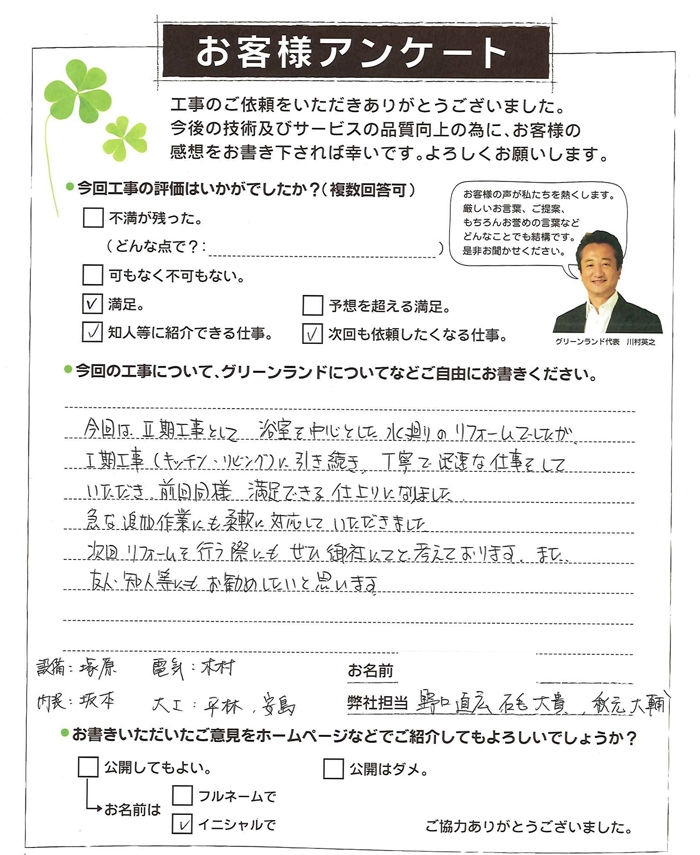 お客様アンケート
工事のご依頼をいただきありがとうございました。
今後の技術及びサービスの品質向上の為に、お客様の
感想をお書き下されば幸いです。よろしくお願いします。
今回工事の評価はいかがでしたか?(複数回答可)
不満が残った。
(どんな点で?: )
可もなく不可もない。
満足。
予想を超える満足。
知人等に紹介できる仕事。
次回も依頼したくなる仕事。
お客様の声が私たちを熱くします。
厳しいお言葉、ご提案、
もちろんお誉めの言葉など
どんなことでも結構です。
是非お聞かせください。
グリーンランド代表 川村英之
今回の工事について、グリーンランドについてなどご自由にお書きください。
今回は Ⅱ期工事として 浴室を中心とした 水廻りのリフォームでしたが、
Ⅰ期工事(キッチン・リビング)に引き続き、丁寧で迅速な仕事をして
いただき、前回同様 満足できる仕上りになりました
急な追加作業にも柔軟に対応していただきました
次回リフォームを行う際にも ぜひ御社にてと考えております。また、
友人・知人等にもお勧めしたいと思います。
設備:塚原 電気:木村
お名前
内装:坂本 大工:平林、安島
弊社担当 野口直広、石毛大貴、秋元大輔
お書きいただいたご意見をホームページなどでご紹介してもよろしいでしょうか?
公開してもよい。
公開はダメ。
お名前は
フルネームで
イニシャルで
ご協力ありがとうございました。